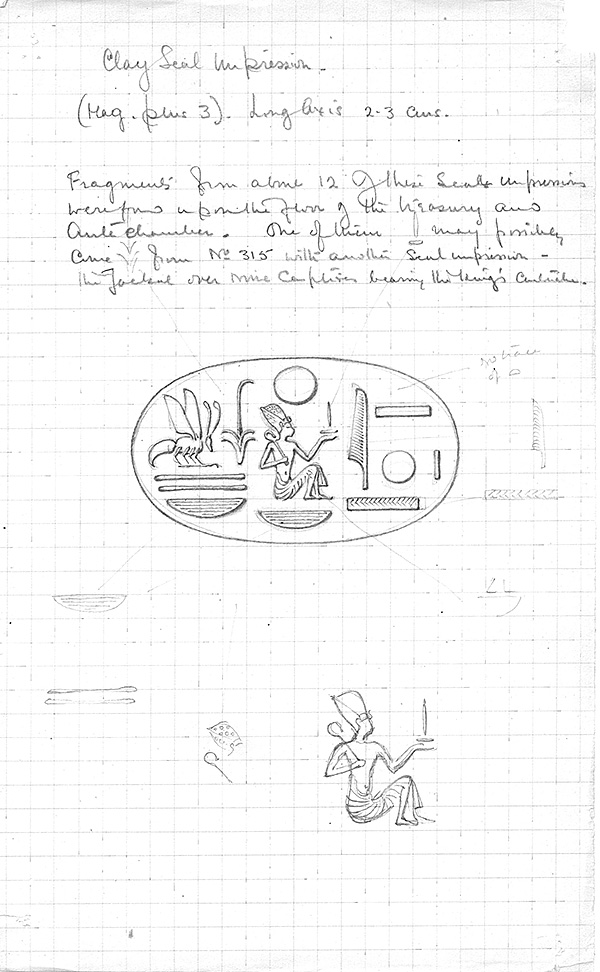 Clay Seal Impression.
(Mag. plus 3). Long Axis 2.3 cms.
Fragments from about 12 of these Seal Impressions
were found upon the floor of the Treasury and
Antechamber. One of them may possibly
come from No 315 with another Seal impression -
the Jackal over nine Captives bearing the King's Cartouche.
no trace
of